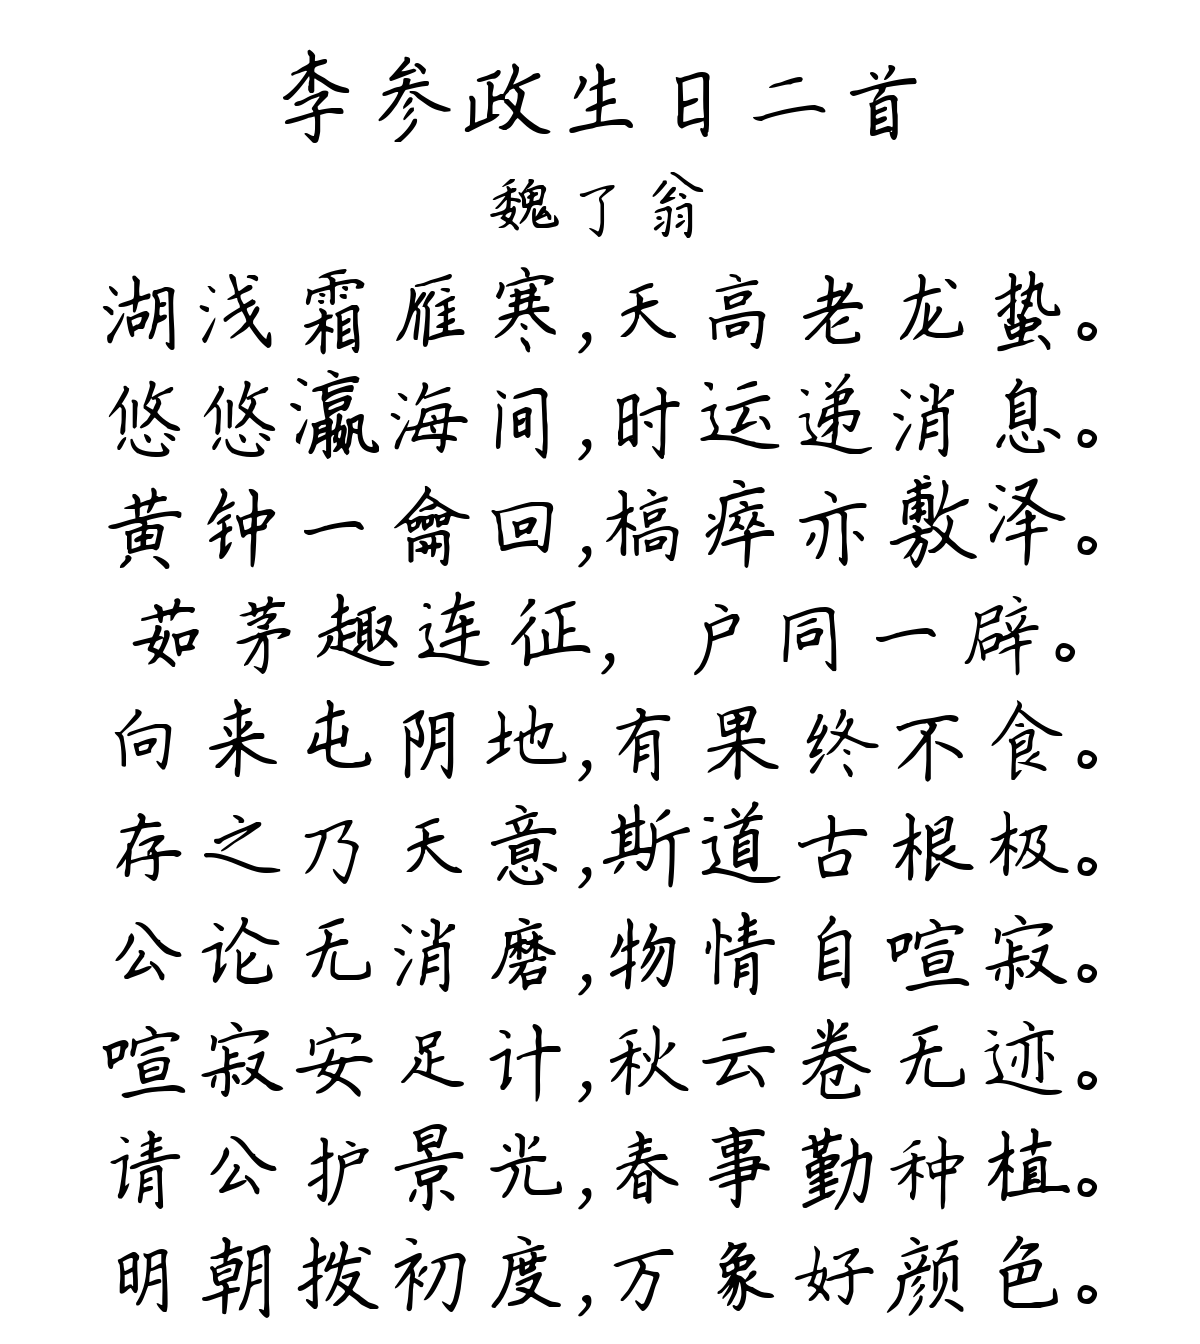 李参政生日二首
魏了翁
湖浅霜雁寒,天高老龙蛰。
悠悠瀛海间,时运递消息。
黄钟一龠回,槁瘁亦敷泽。
茹茅趣连征,户同一辟。
向来屯阴地,有果终不食。
存之乃天意,斯道古根极。
公论无消磨,物情自喧寂。
喧寂安足计,秋云卷无迹。
请公护景光,春事勤种植。
明朝拨初度,万象好颜色。